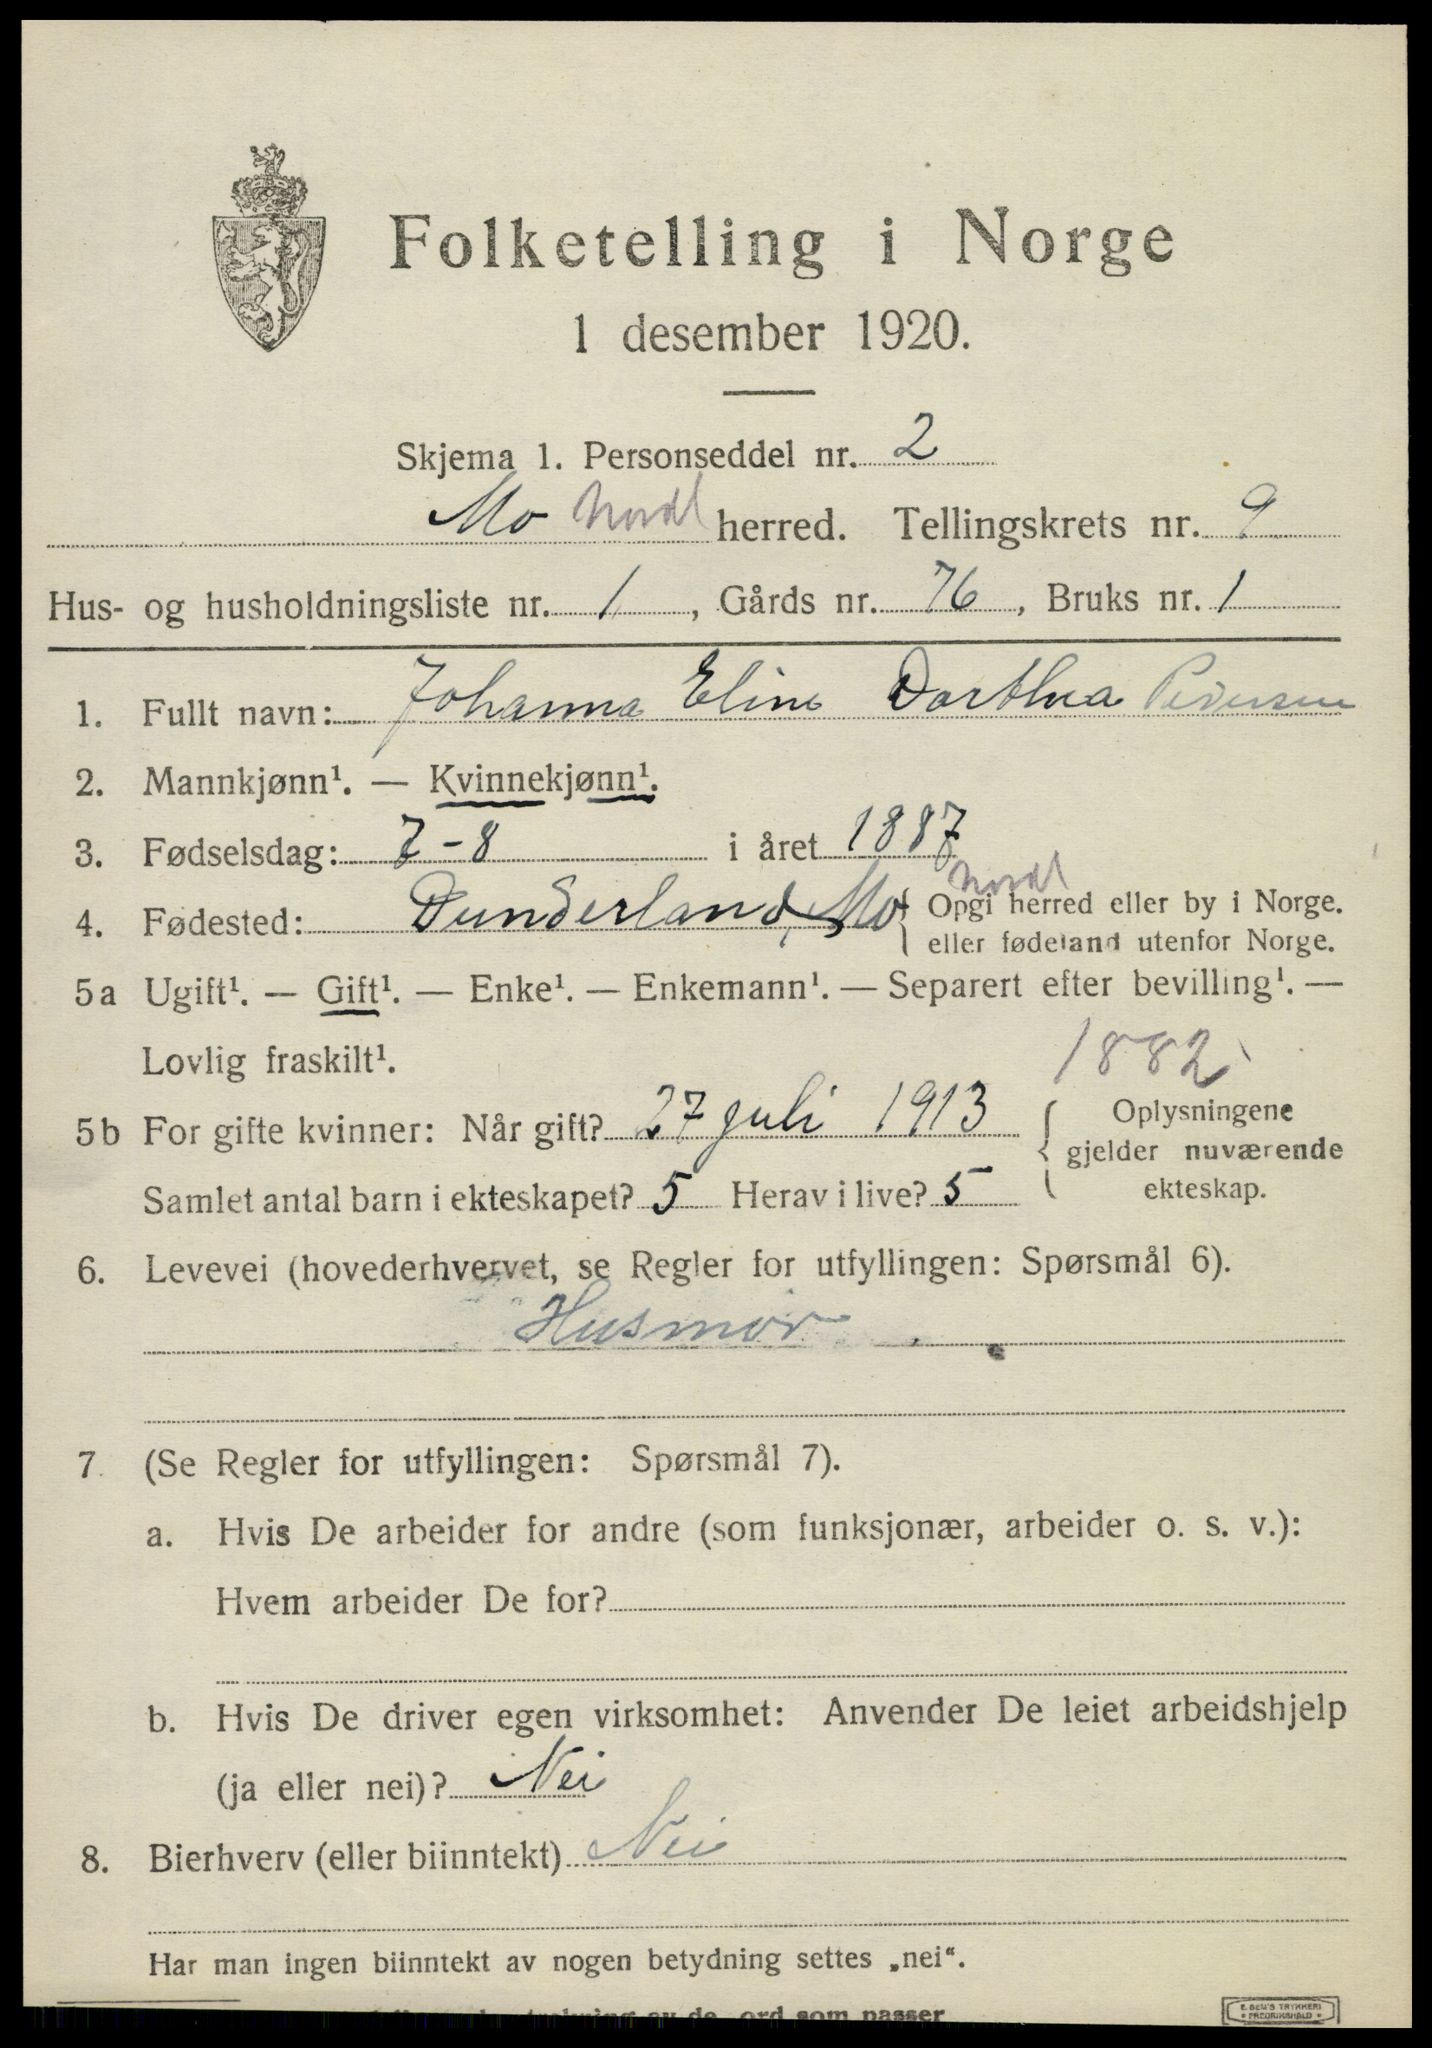 Folketelling i Norge
1 desember 1920.
Skjema 1. Personseddel nr. 2
Mo Nordl herred. Tellingskrets nr. 9
Hus- og husholdningsliste nr. 1, Gårds nr. 76, Bruks nr. 1
1. Fullt navn: Johanna Eline Dorthea Pedersen
2. Mannkjønn¹. — Kvinnekjønn¹.
3. Fødselsdag: 7-8 i året 1887
Nordl
4. Fødested: Dunderland, Mo { Opgi herred eller by i Norge.
eller fødeland utenfor Norge.
5a Ugift¹. — Gift¹. — Enke¹. — Enkemann¹. — Separert efter bevilling¹. —
Lovlig fraskilt¹.
1882
5b For gifte kvinner: Når gift? 27 juli 1913 { Oplysningene
gjelder nuværende
Samlet antal barn i ekteskapet? 5 Herav i live? 5 ekteskap.
6. Levevei (hovederhvervet, se Regler for utfyllingen: Spørsmål 6).
Husmor
7. (Se Regler for utfyllingen: Spørsmål 7).
a. Hvis De arbeider for andre (som funksjonær, arbeider o. s. v.):
Hvem arbeider De for?
b. Hvis De driver egen virksomhet: Anvender De leiet arbeidshjelp
(ja eller nei)? Nei
8. Bierhverv (eller biinntekt) Nei
Har man ingen biinntekt av nogen betydning settes „nei“.
av de ord som passer
E. SEM'S TRYKKERI
FREDRIKSHALD